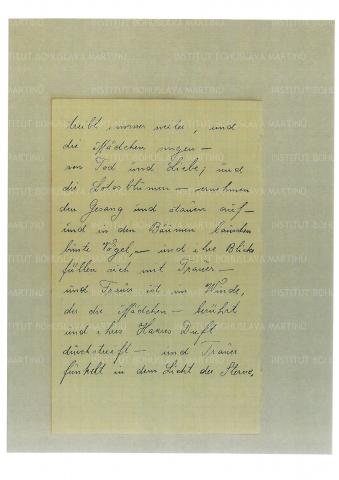 treibt immer weiter, und
die Mädchen singen –
von Tod und Liebe, und
die Lotosblumen – vernehmen
den Gesang und atmen auf –
und in den Bäumen lauschen
bunte Vögel, – und ihre Blicke
füllen sich mit Trauer –
und Trauer ist im Winde,
der die Mädchen – berührt
und ihres Haares Duft
durchstreift – und Trauer
funkelt in dem Licht der Sterne,
INSTITUT BOHUSLAVA MARTINŮ